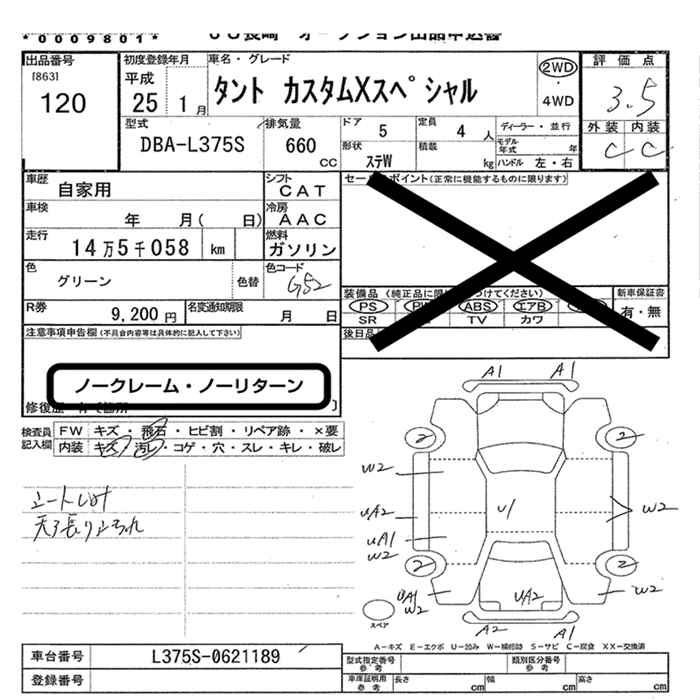 *0009801*
出品番号 初度登録年月 車名・グレード 評価点
[863] 120
平成 25 1月
タント カスタムXスペシャル
2WD ・ 4WD
3.5
外装 内装
C C
型式 DBA-L375S
排気量 660 CC
ドア 5 定員 4 人 ディーラー・並行
形状 ステW 積載 kg モデル年式 年
ハンドル 左・右
車歴 自家用
シフト CAT
セー ポイント(正常に機能するものに限ります)
車検 年 月( 日)
冷房 AAC
走行 14万5千058 km
燃料 ガソリン
色 グリーン 色替
色コード G52
装備品(純正品に限 つけてください)
新車保証書
PS ABS エアB
有・無
SR TV カワ
R券 9,200 円
名変通知期限 月 日
後日品
注意事項申告欄(不具合内容等は具体的に記入して下さい)
ノークレーム・ノーリターン
検査員記入欄
FW キズ・飛石・ヒビ割・リペア跡・×要
内装 キズ・汚レ・コゲ・穴・スレ・キレ・破レ
天張りよごれ
A1 A1
2 2
W2
UA2 U1 W2
UA1
W2
2 2
UA1 W2 UA2 W2
スペア
A2 A1
A-キズ E-エクボ U-凹み W-補修跡 S-サビ C-腐食 XX-交換済
車台番号 L375S-0621189
型式指定番号 参考 類別区分番号 参考
登録番号
車庫証明用 参考 長さ cm 幅 cm 高さ cm